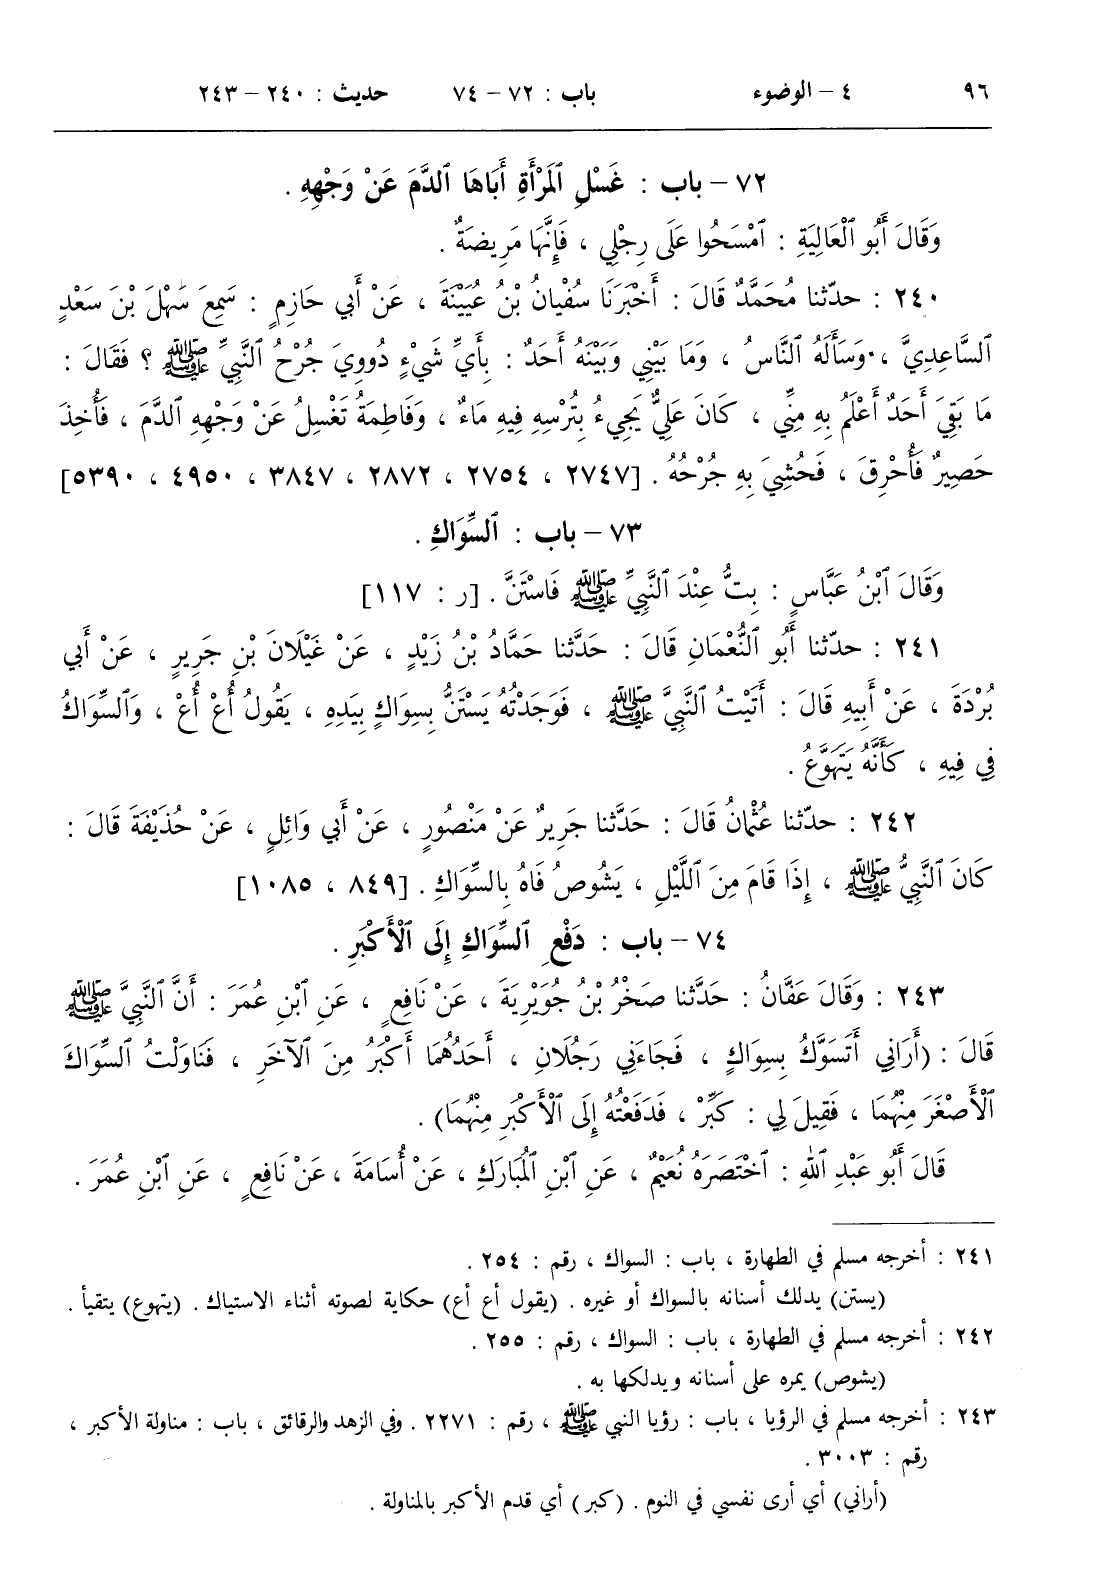 ٩٦ ٤ – الوضوء باب : ٧٢ – ٧٤ حديث : ٢٤٠ – ٢٤٣
٧٢ – باب : غَسْلِ ٱلْمَرْأَةِ أَبَاهَا ٱلدَّمَ عَنْ وَجْهِهِ .
وَقَالَ أَبُو ٱلْعَالِيَةِ : ٱمْسَحُوا عَلَى رِجْلِي ، فَإِنَّهَا مَرِيضَةٌ .
٢٤٠ : حدّثنا مُحَمَّدٌ قَالَ : أَخْبَرَنَا سُفْيَانُ بْنُ عُيَيْنَةَ ، عَنْ أَبِي حَازِمٍ : سَمِعَ سَهْلَ بْنَ سَعْدٍ
ٱلسَّاعِدِيَّ ، وَسَأَلَهُ ٱلنَّاسُ ، وَمَا بَيْنِي وَبَيْنَهُ أَحَدٌ : بِأَيِّ شَيْءٍ دُووِيَ جُرْحُ ٱلنَّبِيِّ ﷺ ؟ فَقَالَ :
مَا بَقِيَ أَحَدٌ أَعْلَمُ بِهِ مِنِّي ، كَانَ عَلِيٌّ يَجِيءُ بِتُرْسِهِ فِيهِ مَاءٌ ، وَفَاطِمَةُ تَغْسِلُ عَنْ وَجْهِهِ ٱلدَّمَ ، فَأُخِذَ
حَصِيرٌ فَأُحْرِقَ ، فَحُشِيَ بِهِ جُرْحُهُ . [٢٧٤٧ ، ٢٧٥٤ ، ٢٨٧٢ ، ٣٨٤٧ ، ٤٩٥٠ ، ٥٣٩٠]
٧٣ – باب : ٱلسِّوَاكِ .
وَقَالَ ٱبْنُ عَبَّاسٍ : بِتُّ عِنْدَ ٱلنَّبِيِّ ﷺ فَاسْتَنَّ . [ر : ١١٧]
٢٤١ : حدّثنا أَبُو ٱلنُّعْمَانِ قَالَ : حَدَّثنا حَمَّادُ بْنُ زَيْدٍ ، عَنْ غَيْلَانَ بْنِ جَرِيرٍ ، عَنْ أَبِي
بُرْدَةَ ، عَنْ أَبِيهِ قَالَ : أَتَيْتُ ٱلنَّبِيَّ ﷺ ، فَوَجَدْتُهُ يَسْتَنُّ بِسِوَاكٍ بِيَدِهِ ، يَقُولُ أُعْ أُعْ ، وَٱلسِّوَاكُ
فِي فِيهِ ، كَأَنَّهُ يَتَهَوَّعُ .
٢٤٢ : حدّثنا عُثْمانُ قَالَ : حَدَّثنا جَرِيرٌ عَنْ مَنْصُورٍ ، عَنْ أَبِي وَائِلٍ ، عَنْ حُذَيْفَةَ قَالَ :
كَانَ ٱلنَّبِيُّ ﷺ ، إِذَا قَامَ مِنَ ٱللَّيْلِ ، يَشُوصُ فَاهُ بِالسِّوَاكِ . [٨٤٩ ، ١٠٨٥]
٧٤ – باب : دَفْعِ ٱلسِّوَاكِ إِلَى ٱلْأَكْبَرِ .
٢٤٣ : وَقَالَ عَفَّانُ : حَدَّثنا صَخْرُ بْنُ جُوَيْرِيَةَ ، عَنْ نَافِعٍ ، عَنِ ٱبْنِ عُمَرَ : أَنَّ ٱلنَّبِيَّ ﷺ
قَالَ : (أَرَانِي أَتَسَوَّكُ بِسِوَاكٍ ، فَجَاءَنِي رَجُلَانِ ، أَحَدُهُمَا أَكْبَرُ مِنَ ٱلْآخَرِ ، فَنَاوَلْتُ ٱلسِّوَاكَ
ٱلْأَصْغَرَ مِنْهُمَا ، فَقِيلَ لِي : كَبِّرْ ، فَدَفَعْتُهُ إِلَى ٱلْأَكْبَرِ مِنْهُمَا) .
قَالَ أَبُو عَبْدِ ٱللهِ : ٱخْتَصَرَهُ نُعَيْمٌ ، عَنِ ٱبْنِ ٱلْمُبَارَكِ ، عَنْ أُسَامَةَ ، عَنْ نَافِعٍ ، عَنِ ٱبْنِ عُمَرَ .
٢٤١ : أخرجه مسلم في الطهارة ، باب : السواك ، رقم : ٢٥٤ .
(يستن) يدلك أسنانه بالسواك أو غيره . (يقول أع أع) حكاية لصوته أثناء الاستياك . (يتهوع) يتقيأ .
٢٤٢ : أخرجه مسلم في الطهارة ، باب : السواك ، رقم : ٢٥٥ .
(يشوص) يمره على أسنانه ويدلكها به .
٢٤٣ : أخرجه مسلم في الرؤيا ، باب : رؤيا النبي ﷺ ، رقم : ٢٢٧١ . وفي الزهد والرقائق ، باب : مناولة الأكبر ،
رقم : ٣٠٠٣ .
(أراني) أي أرى نفسي في النوم . (كبر) أي قدم الأكبر بالمناولة .